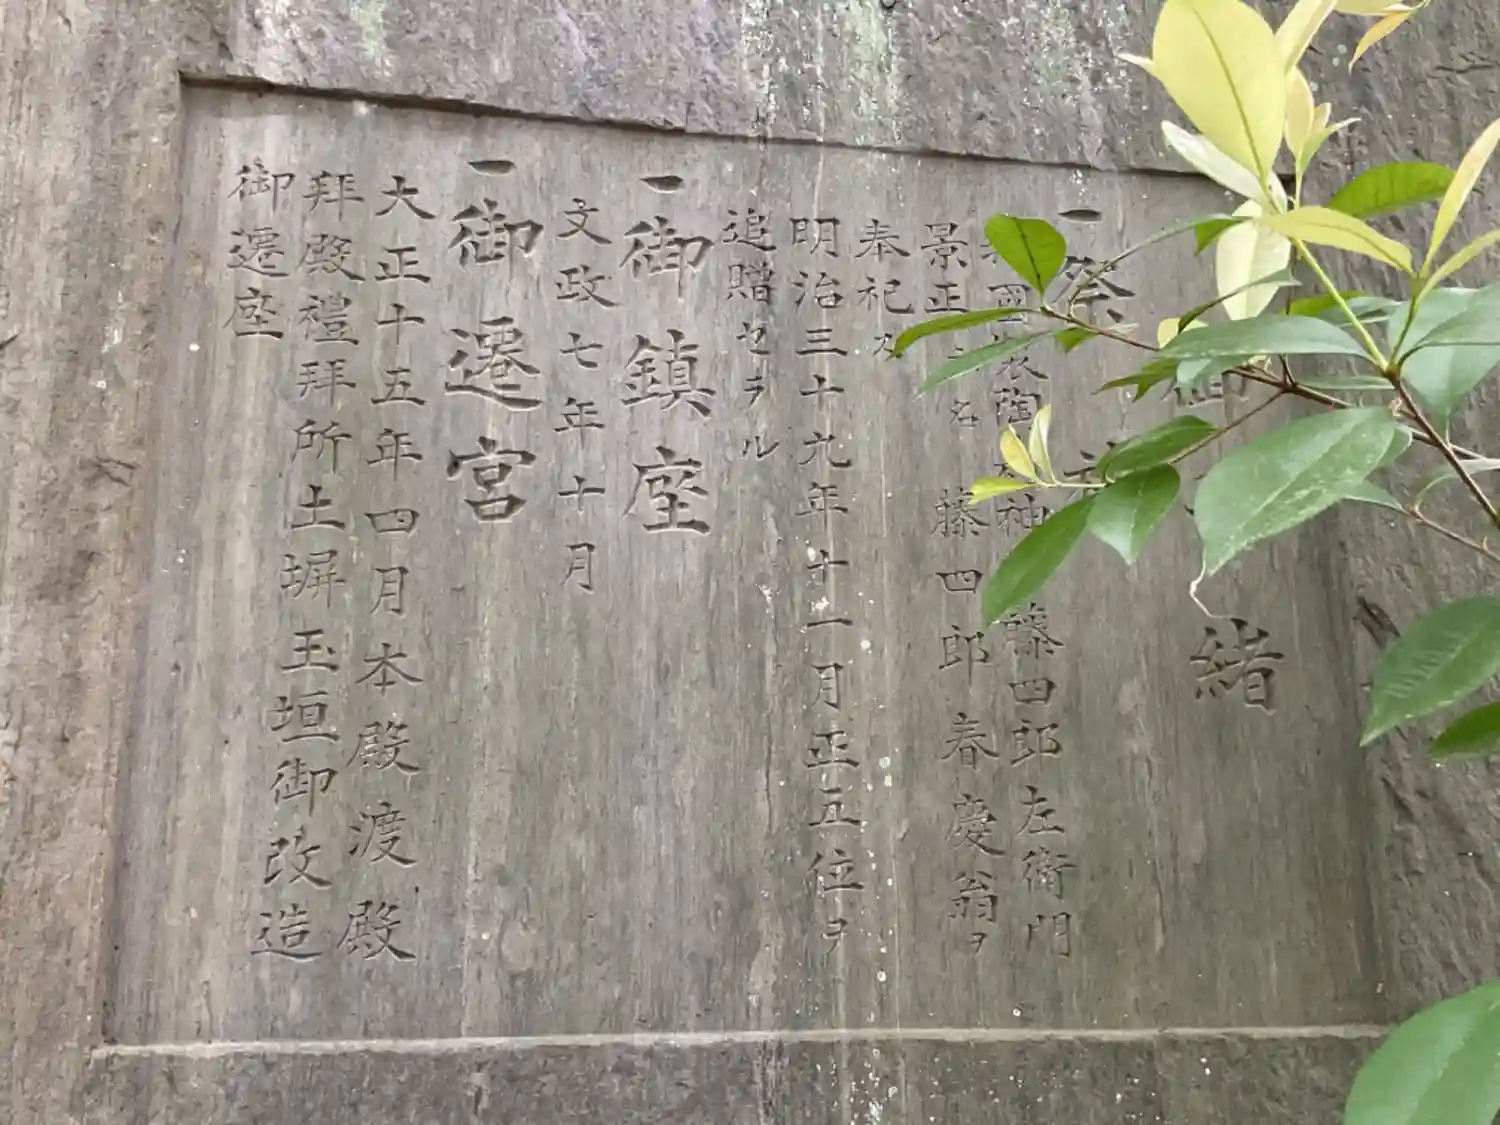 御 緒
一祭
國製陶 神 藤四郎左衛門
景正 名 藤四郎春慶翁ヲ
奉祀ス
明治三十九年十一月正五位ヲ
追贈セラル
一御鎮座
文政七年十月
一御遷宮
大正十五年四月本殿渡殿
拜殿禮拜所土塀玉垣御改造
御遷座